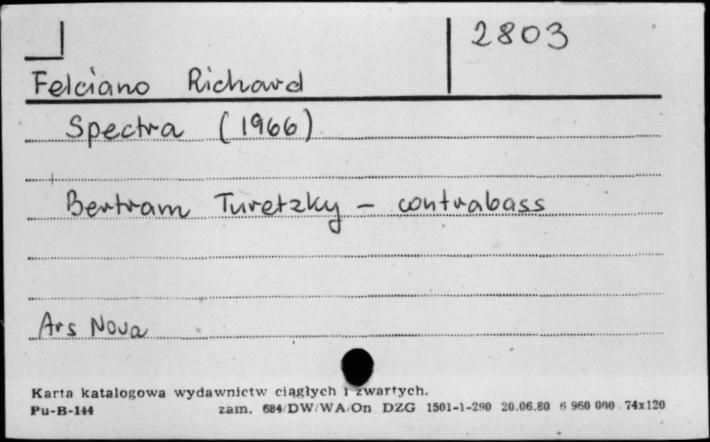 2803
Felciano Richard
Spectra (1966)
Bertram Turetzky - contrabass
Ars Nova
Karta katalogowa wydawnictw ciągłych i zwartych.
Pu-B-144 zam. 684/DW/WA/On DZG 1501-1-290 20.06.80 6 960 000 74x120